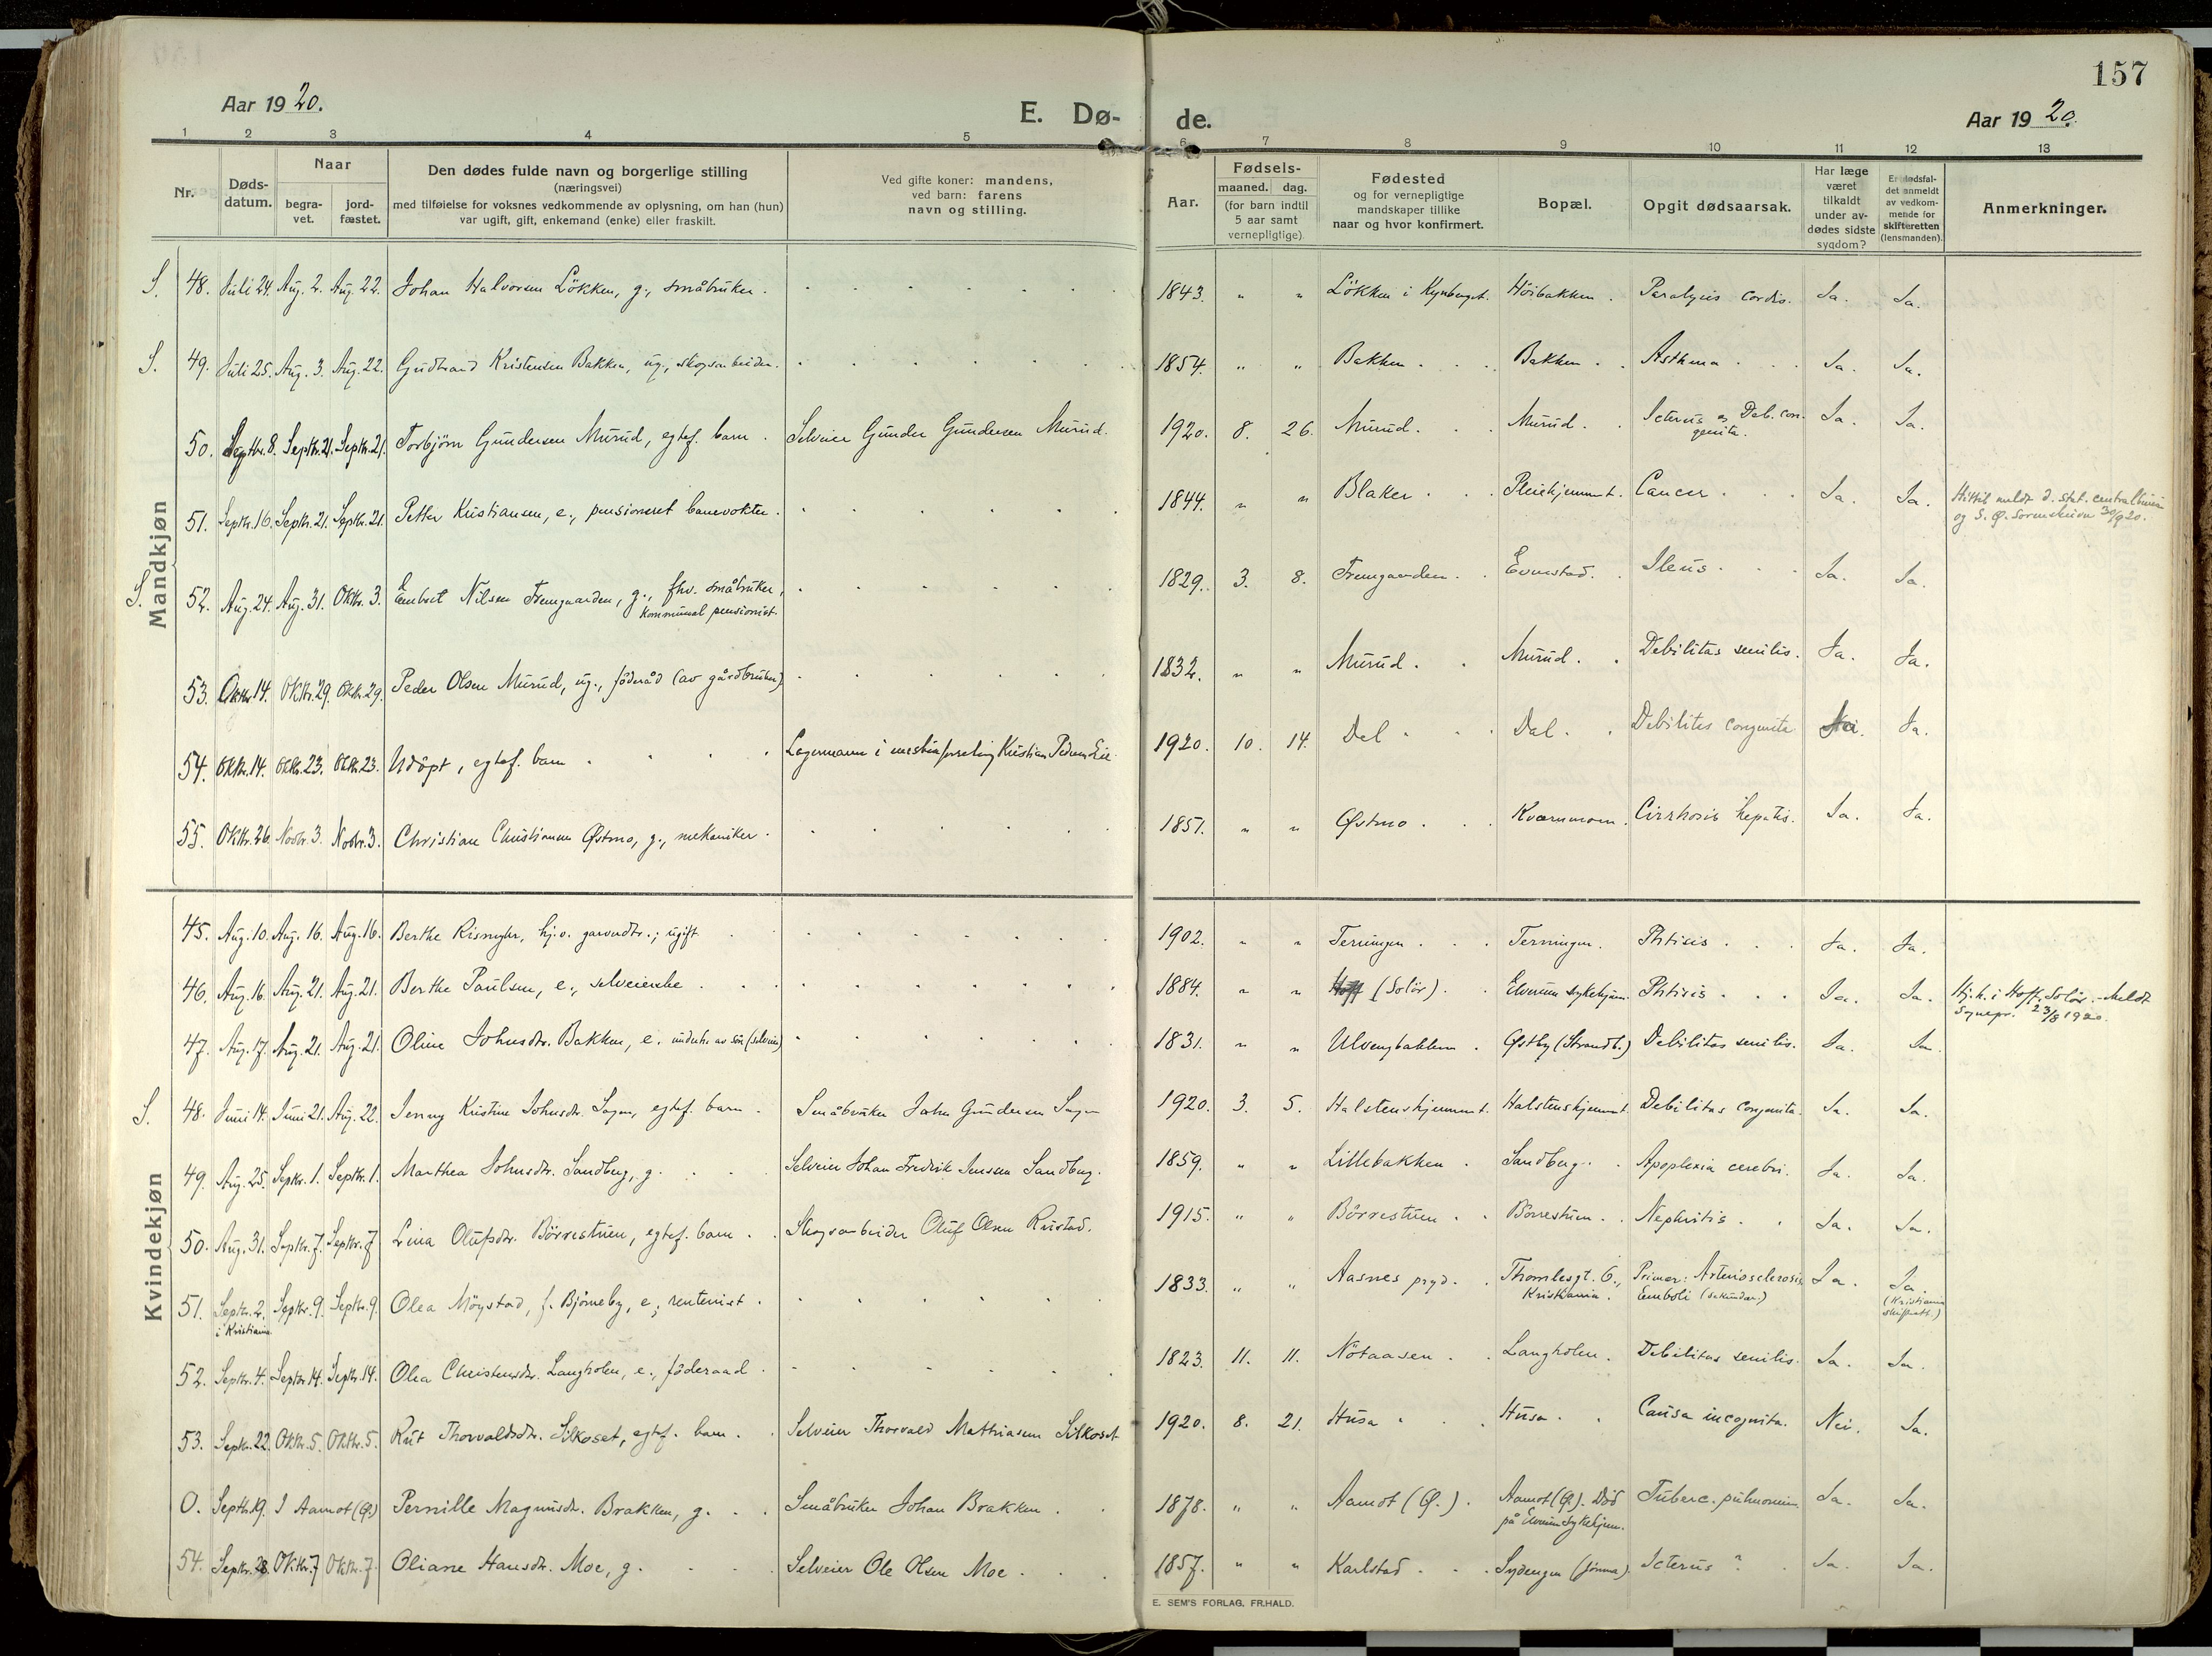 157
Aar 1920.
E. Dø-
de.
Aar 1920.
1 2 3 4 5 6 7 8 9 10 11 12 13
Nr.
Døds-
datum.
Naar
begra-
vet.
jord-
fæstet.
Den dødes fulde navn og borgerlige stilling
(næringsvei)
med tilføielse for voksnes vedkommende av oplysning, om han (hun)
var ugift, gift, enkemand (enke) eller fraskilt.
Ved gifte koner: mandens,
ved barn: farens
navn og stilling.
Aar.
Fødsels-
maaned. dag.
(for barn indtil
5 aar samt
vernepligtige).
Fødested
og for vernepligtige
mandskaper tillike
naar og hvor konfirmert.
Bopæl.
Opgit dødsaarsak.
Har læge
været
tilkaldt
under av-
dødes sidste
sygdom?
Er dødsfal-
det anmeldt
av vedkom-
mende for
skifteretten
(lensmanden).
Anmerkninger.
Mandkjøn
S. 48. Juli 24. Aug. 2. Aug. 22. Johan Halvorsen Lökken, g., småbruker. 1843. " " Lökken i Kynberget. Höibakken. Paralysis cordis. Ja. Ja.
S. 49. Juli 25. Aug. 3. Aug. 22. Gudbrand Kristensen Bakken, ug., skogsarbeider. 1854. " " Bakken. Bakken. Asthma. Ja. Ja.
50. Septbr. 8. Septbr. 21. Septbr. 21. Torbjörn Gundersen Murud, egtef. barn. Selveier Gunder Gundersen Murud. 1920. 8. 26. Murud. Murud. Icterus og Deb. con-
genita. Ja. Ja.
51. Septbr. 16. Septbr. 21. Septbr. 21. Petter Kristiansen, e., pensioneret banevokter. 1844. " " Blaker. Pleiehjemmet. Cancer. Ja. Ja. meldt d. stat. centralbureau
og S. Ø. Sorenskriver 30/9 20.
S. 52. Aug. 24. Aug. 31. Oktbr. 3. Embret Nilsen Fremgaarden, g., fhv. småbruker,
kommunal pensionist. 1829. 3. 8. Fremgaarden. Evenstad. Ileus. Ja. Ja.
53. Oktbr. 14. Oktbr. 29. Oktbr. 29. Peder Olsen Murud, ug., föderåd (av gårdbruker). 1832. " " Murud. Murud. Debilitas senilis. Ja. Ja.
54. Oktbr. 14. Oktbr. 23. Oktbr. 23. Udöpt, egtef. barn. Lagermann i Kristian Pedersen Lie 1920. 10. 14. Dal. Dal. Debilitas congenita Ja.
55. Oktbr. 26. Novbr. 3. Novbr. 3. Christian Christiansen Østmo, g., mekaniker. 1851. " " Østmo. Kvernmoen. Cirrhosis hepatis. Ja. Ja.
Kvindekjøn
45. Aug. 10. Aug. 16. Aug. 16. Berthe Rismyhr, hj.v. gaardtr.; ugift 1902. " " Terningen. Terningen. Phtisis. Ja. Ja.
46. Aug. 16. Aug. 21. Aug. 21. Berthe Paulsen, e., selveierenke. 1884. " " Hoff (Solör). Elverum sykehjem. Phtisis. Ja. Ja. Hj.h. i Hoff, Solör. - Meldt
Sognepr. 23/8 1920.
47. Aug. 17. Aug. 21. Aug. 21. Oline Johnsdtr. Bakken, e. underh. av sön (selveier) 1831. " " Ulvengbakken. Østby (Strandb.) Debilitas senilis. Ja. Ja.
S. 48. Juni 14. Juni 21. Aug. 22. Jenny Kristine Johnsdtr. Sagen, egtef. barn. Småbruker John Gundersen Sagen 1920. 3. 5. Halstenshjemmet. Halstenshjemmet. Debilitas congenita. Ja. Ja.
49. Aug. 25. Septbr. 1. Septbr. 1. Marthea Johnsdtr. Sandberg, g. Selveier Johan Fredrik Jensen Sandberg. 1859. " " Lillebakken. Sandberg. Apoplexia cerebri. Ja. Ja.
50. Aug. 31. Septbr. 7. Septbr. 7. Lina Olufsdtr. Börrestuen, egtef. barn. Skogsarbeider Oluf Olsen Rustad. 1915. " " Börrestuen. Börrestuen. Nephritis. Ja. Ja.
51. Septbr. 2.
i Kristiania Septbr. 9. Septbr. 9. Olea Möystad, f. Björneby, e., rentenist. 1833. " " Aasnes prgd. Thomlesgt. 6.,
Kristiania. Primær: Arteriosclerosis
Emboli (sekundær.) Ja. Ja.
(Kristiania
skifterett)
52. Septbr. 4. Septbr. 14. Septbr. 14. Olea Christensdtr. Langholen, e., föderaad. 1823. 11. 11. Nötaasen. Langholen. Debilitas senilis. Ja. Ja.
53. Septbr. 22. Oktbr. 5. Oktbr. 5. Rut Thorvaldsdtr. Silkoset, egtef. barn. Selveier Thorvald Mathiasen Silkoset 1920. 8. 21. Husa. Husa. Causa incognita. Nei. Ja.
0. Septbr. 19. I Aamot (Ø.) Pernille Magnusdtr. Brakken, g. Småbruker Johan Brakken. 1878. " " Aamot (Ø.). Aamot (Ø.). Död
på Elverum sykehjem. Tuberc. pulmonum. Ja. Ja.
54. Septbr. 28. Oktbr. 7 Oktbr. 7. Oliane Hansdtr. Moe, g. Selveier Ole Olsen Moe. 1857. " " Karlstad. Sydengen (Jömna). Icterus ? Ja. Ja.
E. SEM'S FORLAG, FR.HALD.